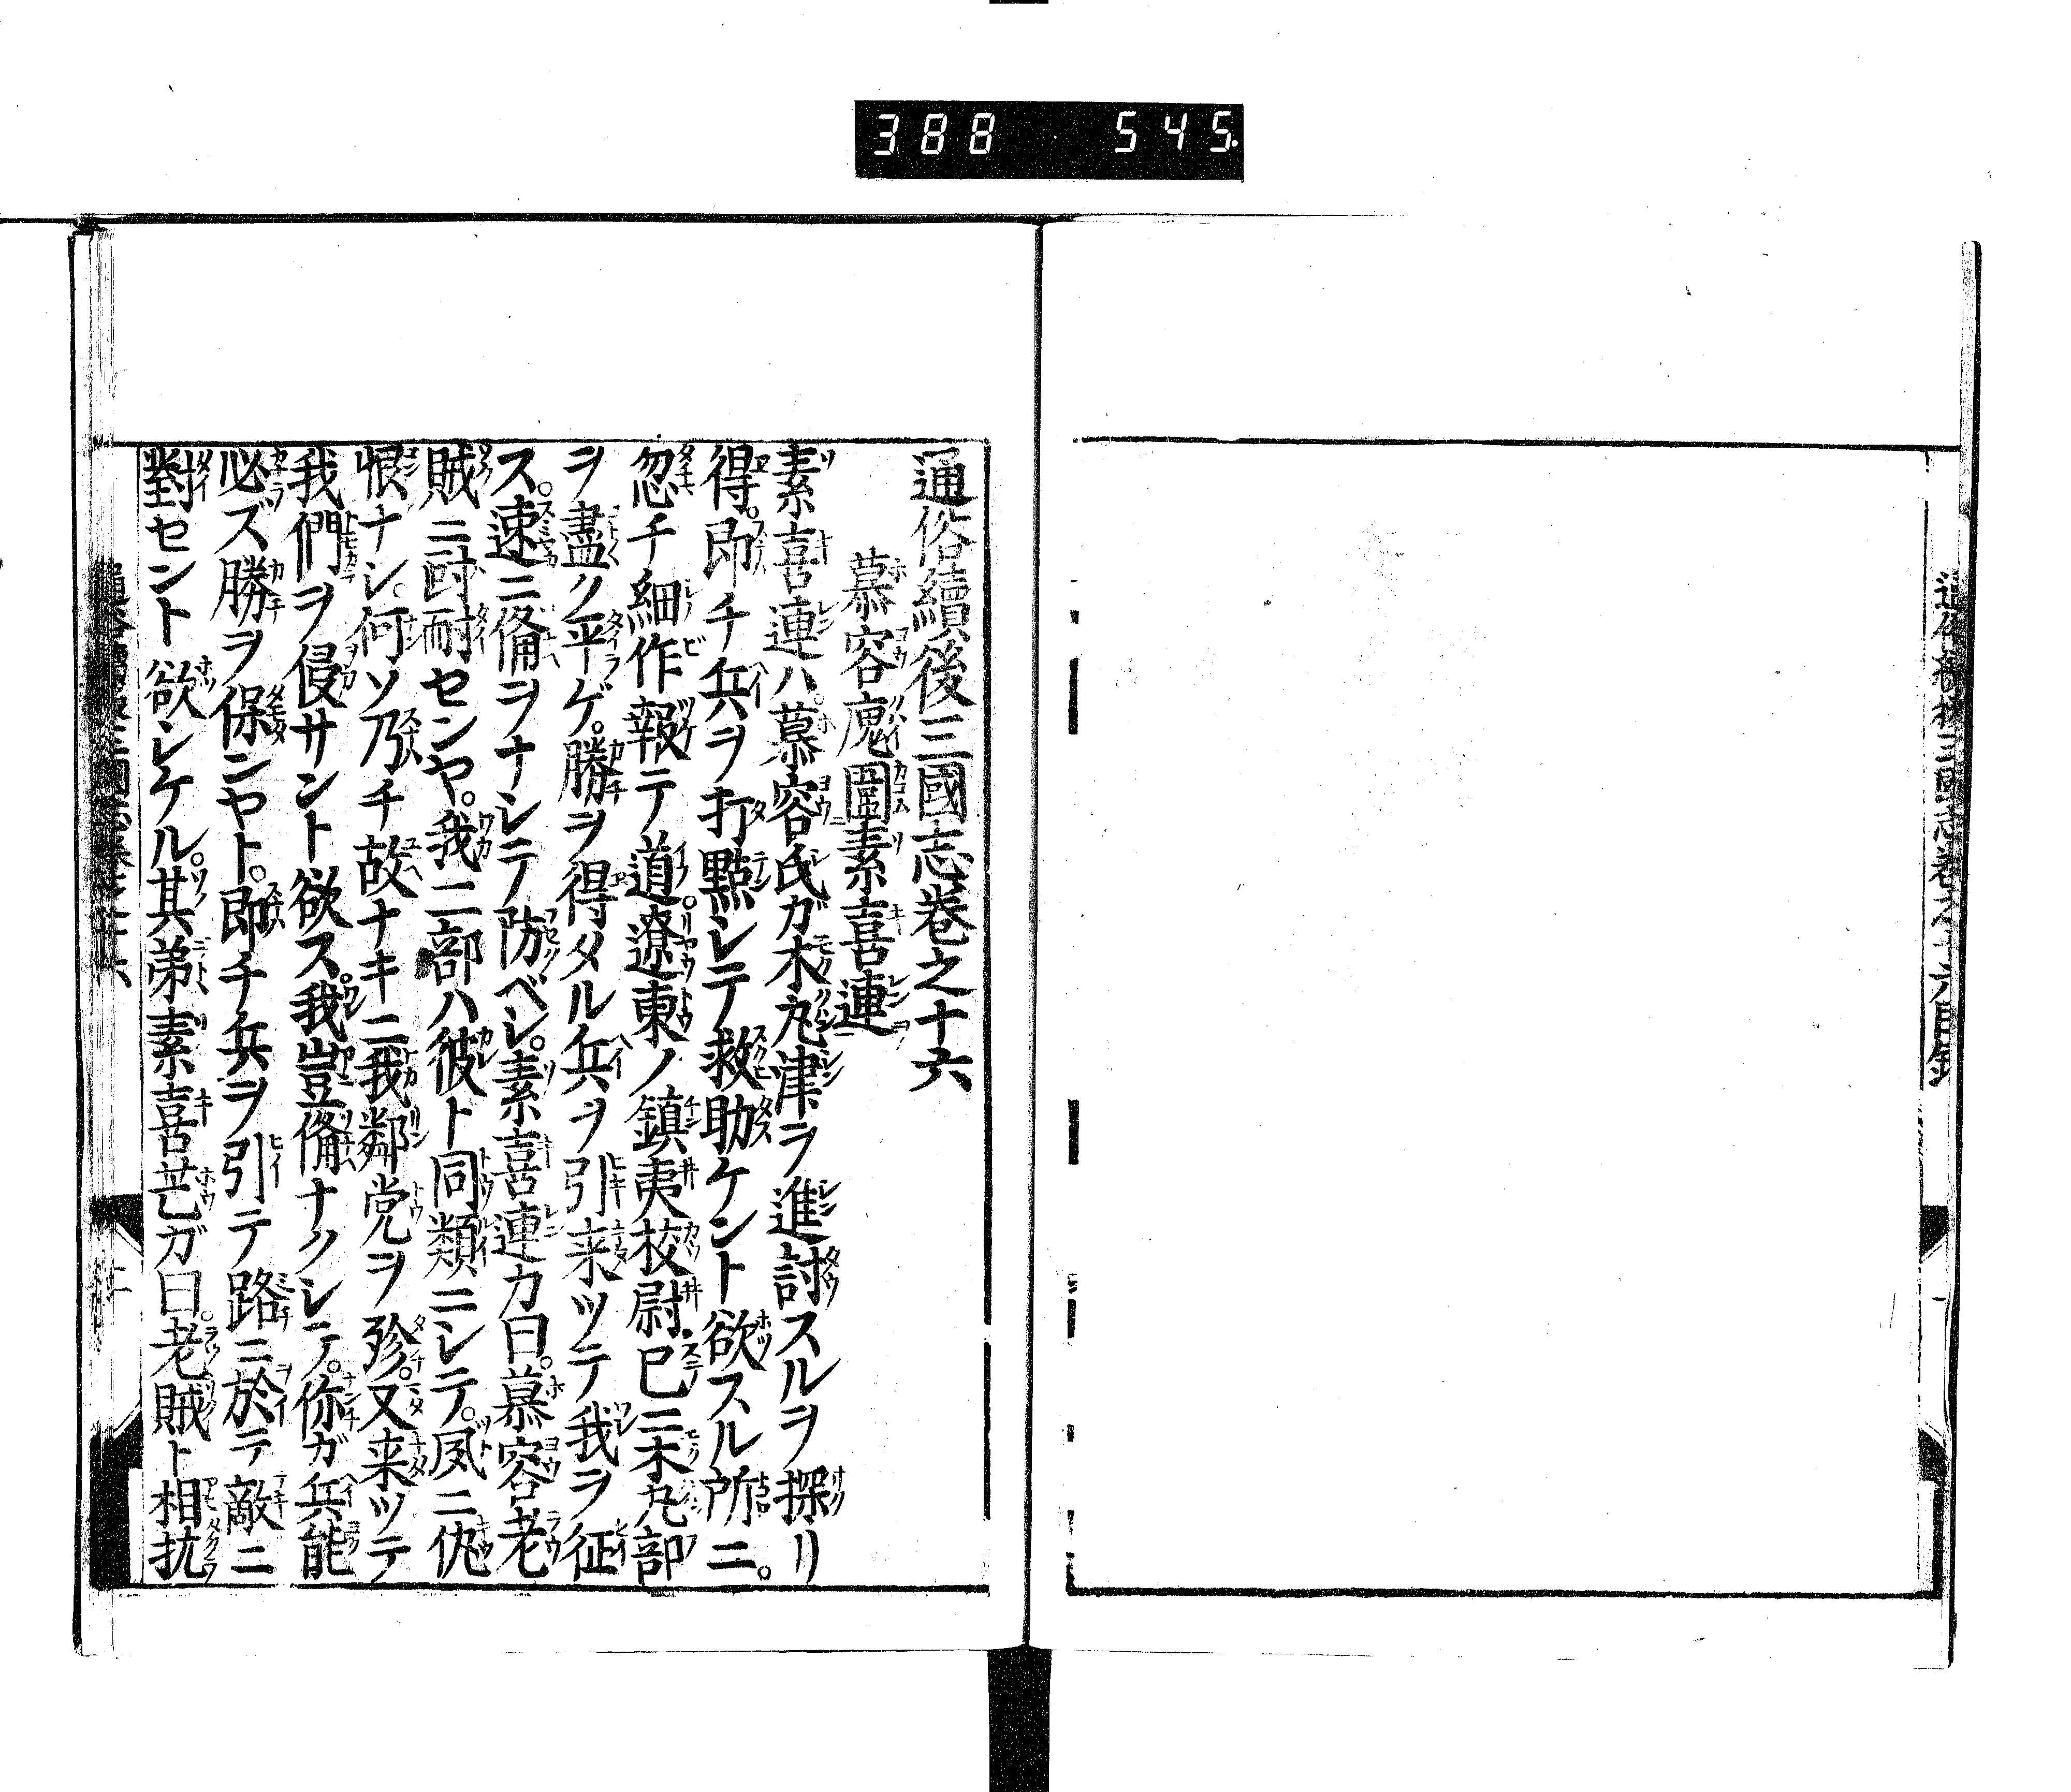 388 545
通俗續後三國志巻之十六目録
通俗續後三國志巻之十六
慕容廆圍素喜連
素喜連ハ慕容氏ガ木丸津ヲ進討スルヲ探リ
得。即チ兵ヲ打點シテ救助ケント欲スル所ニ。
忽チ細作報テ道。遼東ノ鎮夷校尉已ニ木丸部
ヲ盡ク平ゲ。勝ヲ得タル兵ヲ引来ツテ我ヲ征
ス。速ニ備ヲナシテ防ベシ。素喜連カ曰。慕容老
賊ニ耐センヤ。我二部ハ彼ト同類ニシテ。夙ニ仇
恨ナシ。何ソ乃チ故ナキニ我鄰党ヲ殄。又来ツテ
我們ヲ侵サント欲ス。我豈備ナクシテ。你ガ兵能
必ズ勝ヲ保ンヤト。即チ兵ヲ引テ路ニ於テ敵ニ
對セント欲シケル。其弟素喜芒ガ曰。老賊ト相抗